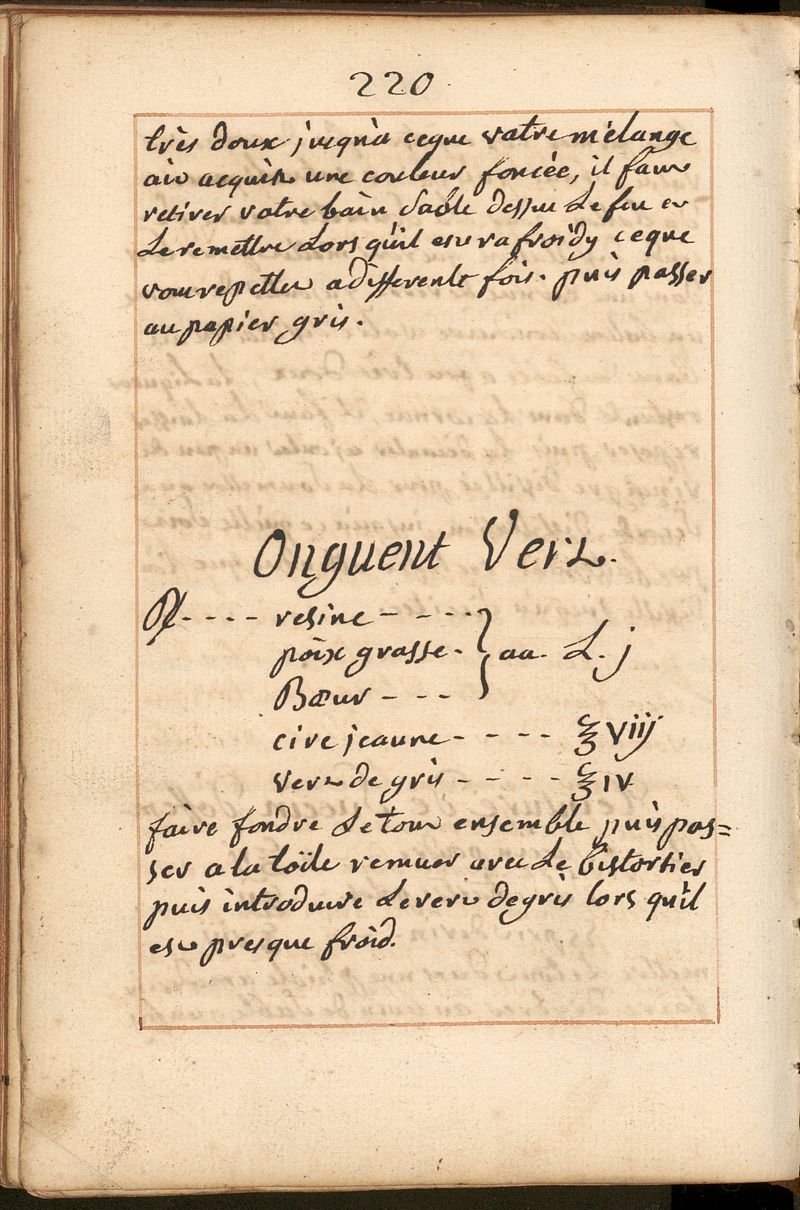 220
très doux jusqu'à ceque vatre mélange
ait acquit une couleur foncée, il faut
retirer votre bain Sable dessu Le feu et
Le remettre Lors qu'il est rafroidy ceque
vous repetter a differente fois. puis passer
au papier gris.
Onguent Vert.
℞. - - - - resine - - - -
poix grasse. } aa. L. j
Bœur - - -
cire jeaune - - - - ℥ viij
vert de gris - - - - ℥ iv
faire fondre Le tout ensemble puis pas=
ser a la toile remuer avec Le bistortier
puis introduire Levert degris lors qu'il
est presque froid.